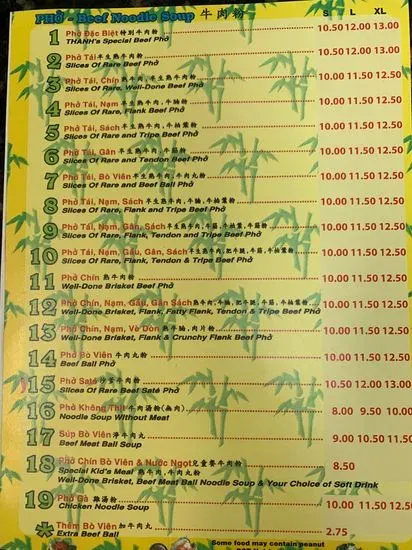 PHỞ - Beef Noodle Soup 牛肉粉 S L XL
1 Phở Đặc Biệt 特別牛肉粉 10.50 12.00 13.00
THANH's Special Beef Phở
2 Phở Tái 半生熟牛肉粉 10.50 12.00 13.00
Slices Of Rare Beef Phở
3 Phở Tái, Chín 半生熟牛肉, 牛腩粉 10.00 11.50 12.50
Slices Of Rare, Well-Done Beef Phở
4 Phở Tái, Nạm 半生熟牛肉, 牛腩粉 10.00 11.50 12.50
Slices Of Rare, Flank Beef Phở
5 Phở Tái, Sách 半生熟牛肉, 牛柏葉粉 10.00 11.50 12.50
Slices Of Rare and Tripe Beef Phở
6 Phở Tái, Gân 半生熟牛肉, 牛筋粉 10.00 11.50 12.50
Slices Of Rare and Tendon Beef Phở
7 Phở Tái, Bò Viên 半生熟牛肉, 牛肉丸粉 10.00 11.50 12.50
Slices Of Rare and Beef Ball Phở
8 Phở Tái, Nạm, Sách 半生熟牛肉, 牛腩, 牛柏葉粉 10.00 11.50 12.50
Slices Of Rare, Flank and Tripe Beef Phở
9 Phở Tái, Nạm, Gân, Sách 半生熟牛肉, 牛腩, 牛筋, 牛柏葉粉 10.00 11.50 12.50
Slices Of Rare, Flank, Tendon and Tripe Beef Phở
10 Phở Tái, Nạm, Gầu, Gân, Sách 半生熟牛肉, 肥牛腩, 牛筋, 牛柏葉粉 10.00 11.50 12.50
Slices Of Rare, Flank, Tendon & Tripe Beef Phở
11 Phở Chín 熟牛肉粉 10.00 11.50 12.50
Well-Done Brisket Beef Phở
12 Phở Chín, Nạm, Gầu, Gân Sách 熟牛肉, 牛腩, 肥牛腩, 牛筋, 牛柏葉粉 10.00 11.50 12.50
Well-Done Brisket, Flank, Fatty Flank, Tendon & Tripe Beef Phở
13 Phở Chín, Nạm, Vè Dòn 熟牛腩, 肉片粉 10.00 11.50 12.50
Well-Done Brisket, Flank & Crunchy Flank Beef Phở
14 Phở Bò Viên 牛肉丸粉 10.00 11.50 12.50
Beef Ball Phở
15 Phở Saté 沙爹牛肉粉 10.50 12.00 13.00
Slices Of Rare Beef Saté Phở
16 Phở Không Thịt 牛肉湯粉(無肉) 8.00 9.50 10.00
Noodle Soup Without Meat
17 Súp Bò Viên 淨牛肉丸 9.00 10.50 11.50
Beef Meat Ball Soup
18 Phở Chín Bò Viên & Nước Ngọt 兒童餐牛肉粉 8.50
Special Kid's Meal 熟牛肉, 牛肉丸粉
Well-Done Brisket, Beef Meat Ball Noodle Soup & Your Choice of Soft Drink
19 Phở Gà 雞湯粉 10.00 11.50 12.50
Chicken Noodle Soup
* Thêm Bò Viên 加牛肉丸 2.75
Extra Beef Ball
Some food may contain peanut